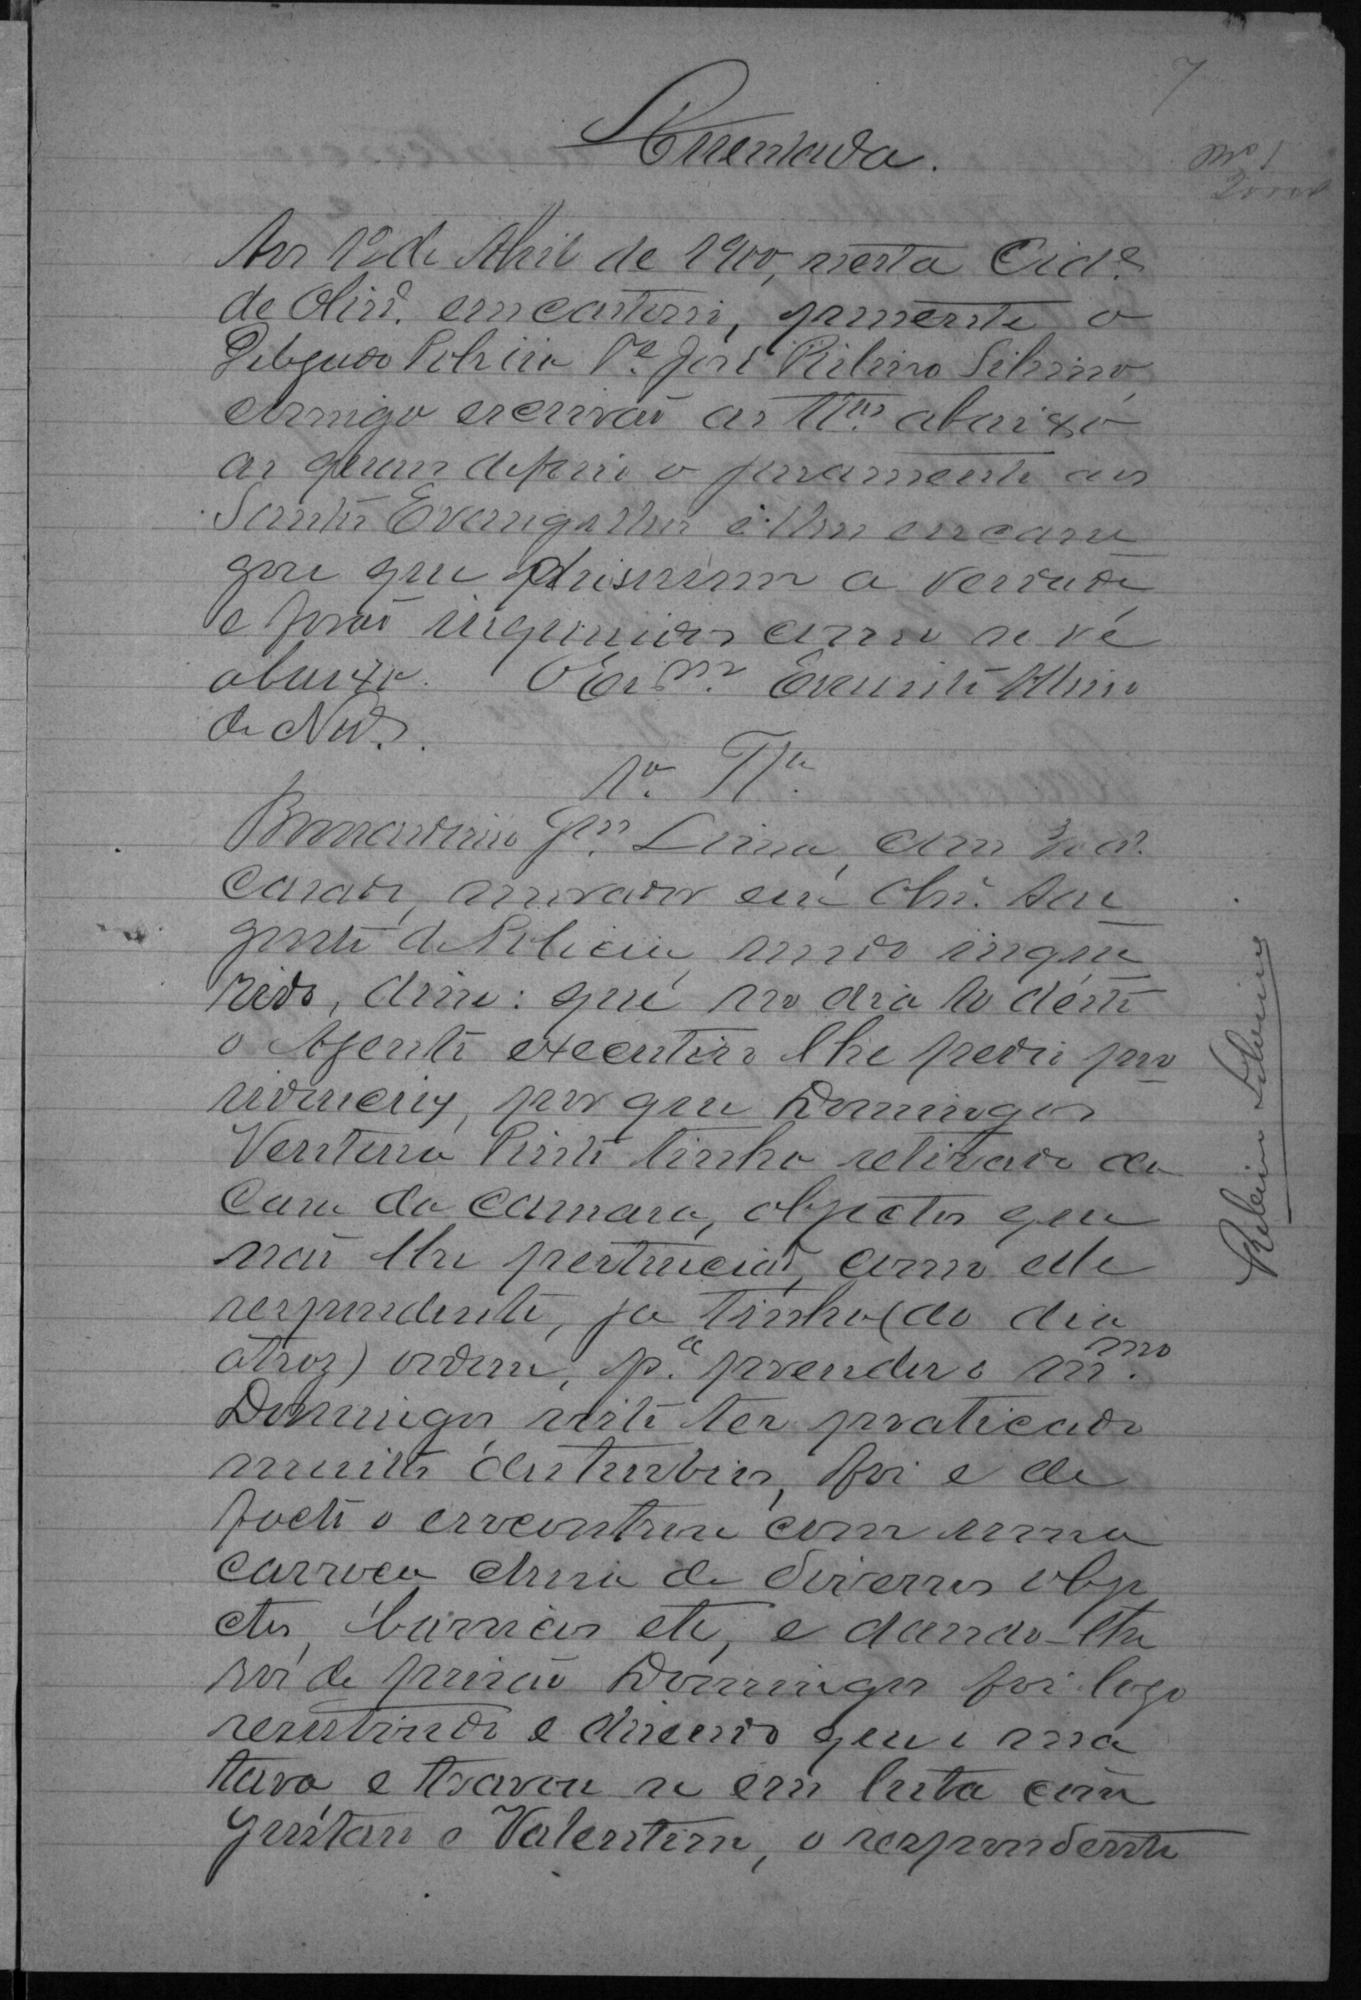 7
Assentada.
Aos 12 de Abril de 1900, nesta Cid.e
de Oliv.a em cartorio, presente o
Delegado Policia José Ribeiro Silvino
comigo escrivão as TT.as abaixo
as quem deferio o juramento aos
Santos Evangelhos e lhes encarre
gou que dissessem a verdade
e forão inqueridos como se vê
abaixo. O Escr.m Evaristo
de
1.a T.a
Bernardino Lima, com 30 a.
casado, morador em Oliv.a Sar
gento de Policia, sendo inque
rido, disse: que no dia 10 deste
o Agente executivo lhe pedio pro
videncias, por que Domingos
Ventura Pinto tinha retirado da
casa da camara, objectos que
não lhe pertencião, como elle
respondente, ja tinha (do dia
atroz) ordem, p.a prender o m.mo
Domingos, visto ter praticado
muitos disturbios, foi e de
facto o encontrou com uma
carroça cheia de diversos obje
ctos, barricas etc, e dando-lhe
voz de prisão Domingos foi logo
resistindo e dizendo que o ma
tava, e travou se em luta com
Justino e Valentim, o respondente
Ribeiro Silvino